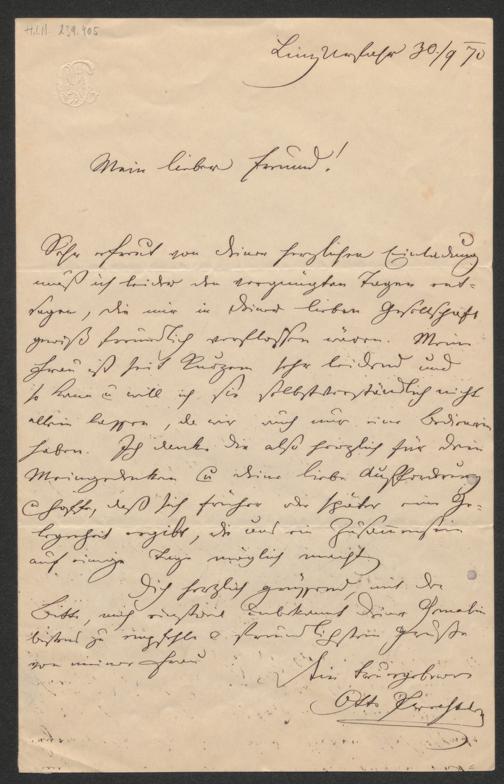 H.I.N. 239.405
Linz Urfahr 30/9 70
Mein lieber Freund!
Sehr erfreut von deiner herzlichen Einladung
muß ich leider den vergnügten Tagen ent-
sagen, die mir in deiner lieben Gesellschaft
gewiß freundlich verflossen wären. Meine
Frau ist seit Kurzem sehr leidend und
so kann u will ich sie selbstverständlich nicht
allein lassen, da wir auch nur eine Bedienerin
haben. Ich danke dir also herzlich für dein
Meingedenken u deine liebe Aufforderung
u hoffe, daß sich früher oder später eine Ge-
legenheit ergibt, die uns ein Zusammensein
auf einige Tage möglich macht
Dich herzlich grüssend mit der
Bitte, mich einstweilen unbekannt deiner Gemalin
bestens zu empfehlen u freundlichsten Grüße
von meiner Frau
Dein treuergebener
Otto Prechtler